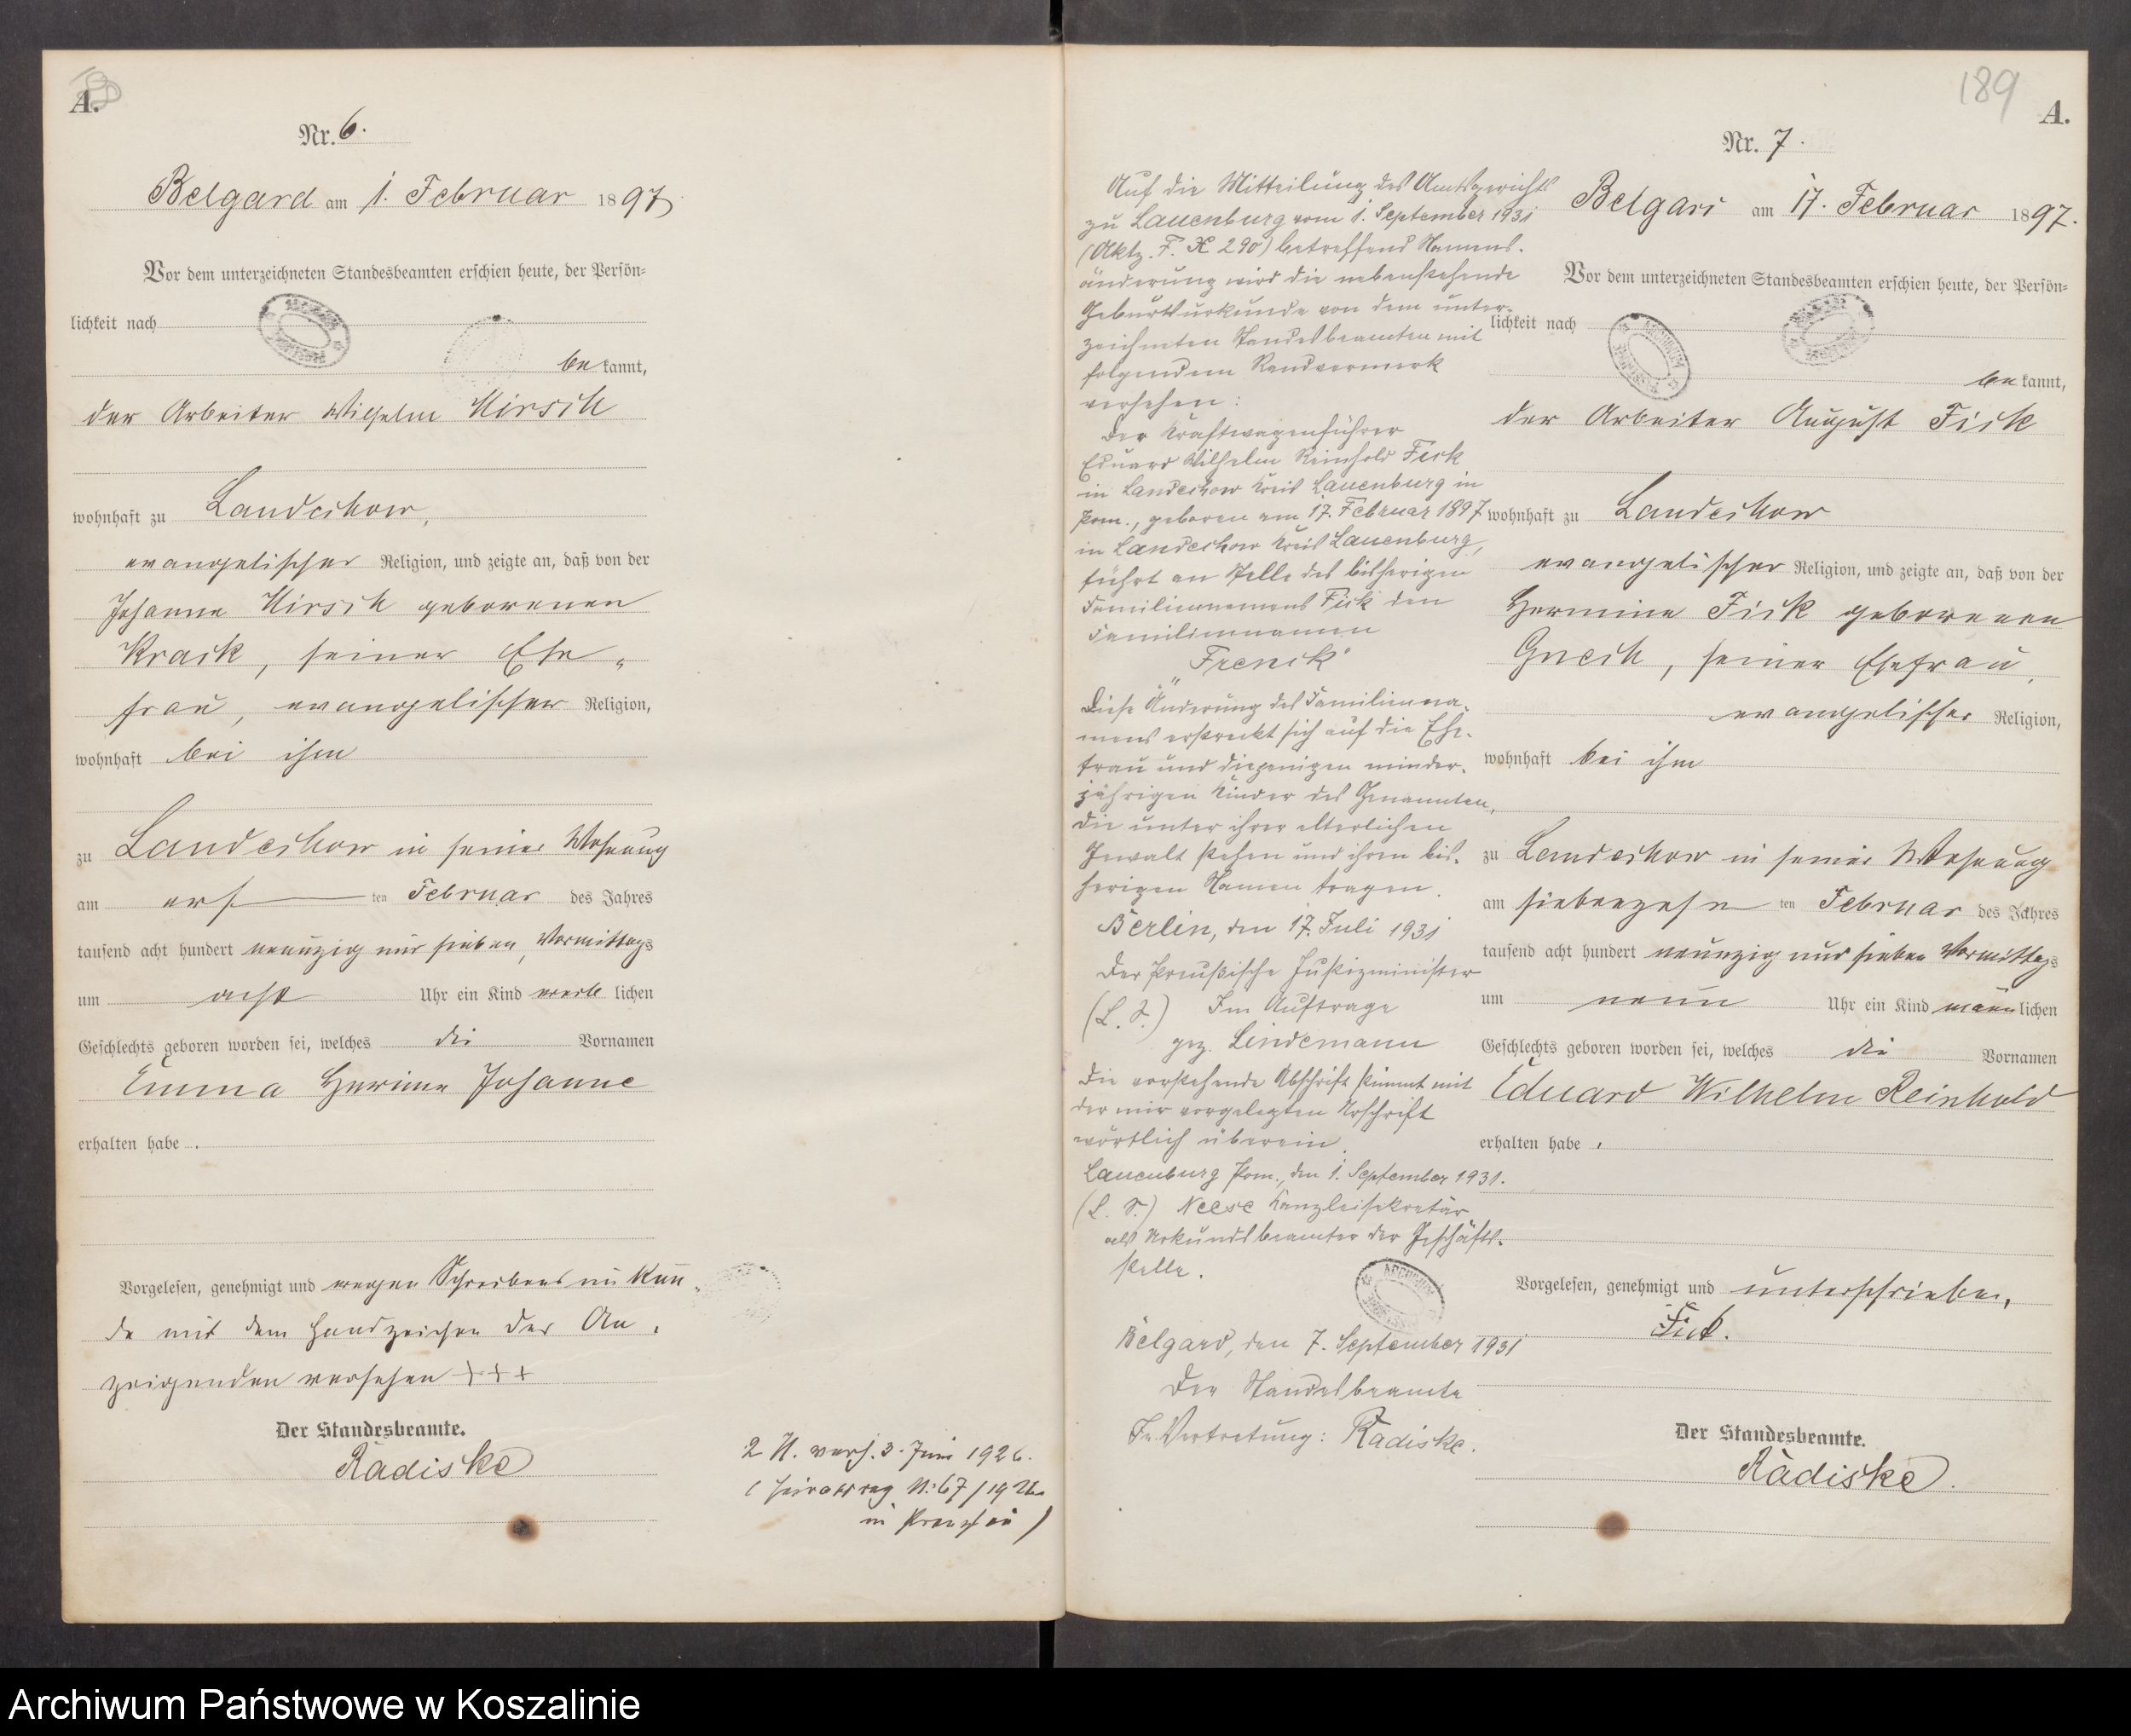 A.
Nr. 6.
Belgard am 1. Februar 1897
Vor dem unterzeichneten Standesbeamten erschien heute, der Persön-
lichkeit nach
be kannt,
der Arbeiter Wilhelm Kirsch
wohnhaft zu Landechow,
evangelischer Religion, und zeigte an, daß von der
Johanne Kirsch geborenen
Krack, seiner Ehe-
frau, evangelischer Religion,
wohnhaft bei ihm
zu Landechow in seiner Wohnung
am ers ten Februar des Jahres
tausend acht hundert neunzig und sieben, Vormittags
um acht Uhr ein Kind weib lichen
Geschlechts geboren worden sei, welches die Vornamen
Emma Johanne
erhalten habe.
Vorgelesen, genehmigt und wegen Schreibens unkun-
de mit dem Handzeichen des An-
zeigenden versehen +++
Der Standesbeamte.
Radiske
3. Juni 1926.
189
A.
Auf die Mitteilung des Amtsgerichts
zu Lauenburg vom 1. September 1931
(Aktz. F. X 290) betreffend Namens-
änderung wird die nebenstehende
Geburtsurkunde von dem unter-
zeichneten Standesbeamten mit
folgendem Randvermerk
versehen:
Der Kraftwagenführer
Eduard Wilhelm Reinhold Fick
in Landechow Kreis Lauenburg in
Pom., geboren am 17. Februar 1897
in Landechow Kreis Lauenburg,
führt an Stelle des bisherigen
Familiennamens Fick den
Familiennamen
"Frenck"
Diese Änderung des Familienna-
mens erstreckt sich auf die Ehe-
frau und diejenigen minder-
jährigen Kinder des Genannten,
die unter ihrer elterlichen
Gewalt stehen und ihren bis-
herigen Namen tragen.
Berlin, den 17. Juli 1931
Der Preußische Justizminister
(L. S.) Im Auftrage
gez. Lindemann
Die vorstehende Abschrift stimmt mit
der mir vorgelegten Urschrift
wörtlich überein.
Lauenburg Pom., den 1. September 1931.
(L. S.) Neese Kanzleisekretär
als Urkundsbeamter der Geschäfts-
stelle.
Belgard, den 7. September 1931
Der Standesbeamte
In Vertretung: Radiske.
Nr. 7.
Belgard am 17. Februar 1897.
Vor dem unterzeichneten Standesbeamten erschien heute, der Persön-
lichkeit nach
be kannt,
der Arbeiter August Fick
wohnhaft zu Landechow
evangelischer Religion, und zeigte an, daß von der
Hermine Fick geborenen
Gnech, seiner Ehefrau,
evangelischer Religion,
wohnhaft bei ihm
zu Landechow in seiner Wohnung
am siebenzehn ten Februar des Jahres
tausend acht hundert neunzig und sieben Vormittags
um neun Uhr ein Kind männ lichen
Geschlechts geboren worden sei, welches die Vornamen
Eduard Wilhelm Reinhold
erhalten habe.
Vorgelesen, genehmigt und unterschrieben,
Fick.
Der Standesbeamte.
Radiske.
Archiwum Państwowe w Koszalinie